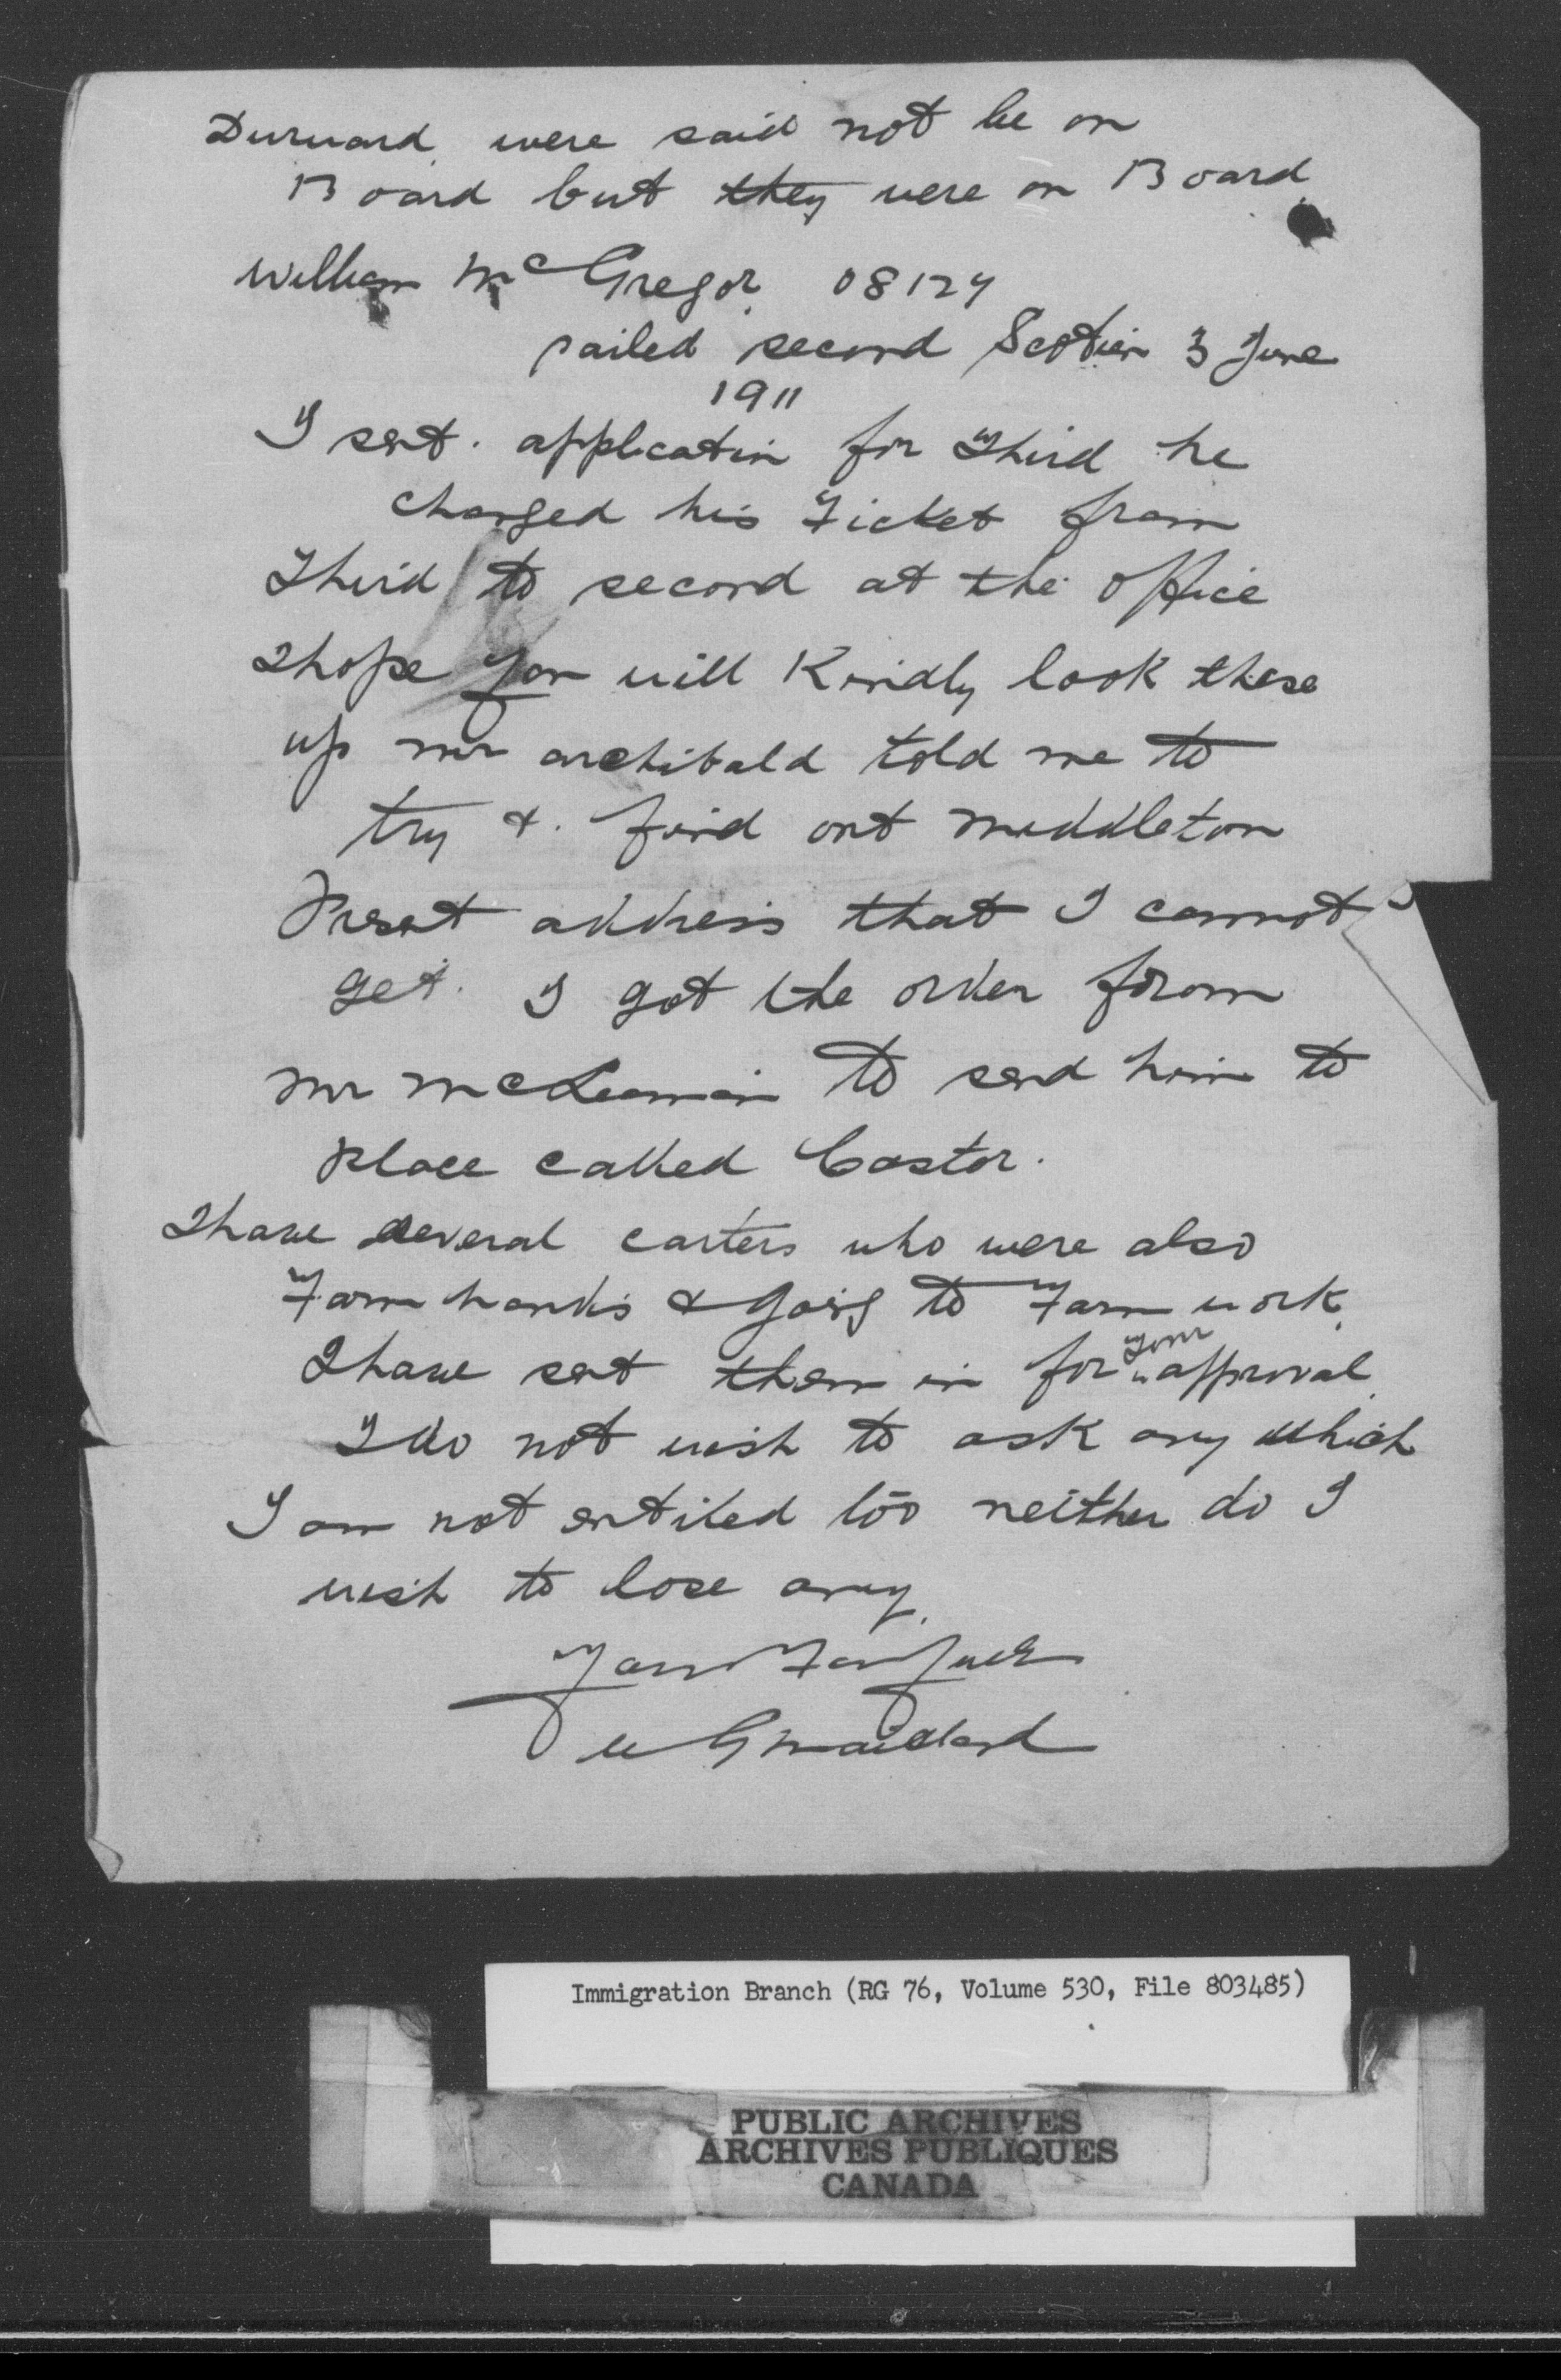 Durward were said not be on
Board but they were on Board
William McGregor 08124
sailed second Scotian 3 June
1911
I sent. application for Third he
changed his Ticket from
Third to second at the office
I hope you will Kindly look these
up mr archibald told me to
try &. find out middleton
Present address that I cannot
get. I got the order from
mr to send him to
place called Castor.
I have several carters who were also
Farm hands & going to Farm work.
I have sent them in for your approval.
I do not wish to ask any which
I am not entitled too neither do I
wish to lose any.
Yours
Immigration Branch (RG 76, Volume 530, File 803485)
PUBLIC ARCHIVES
ARCHIVES PUBLIQUES
CANADA